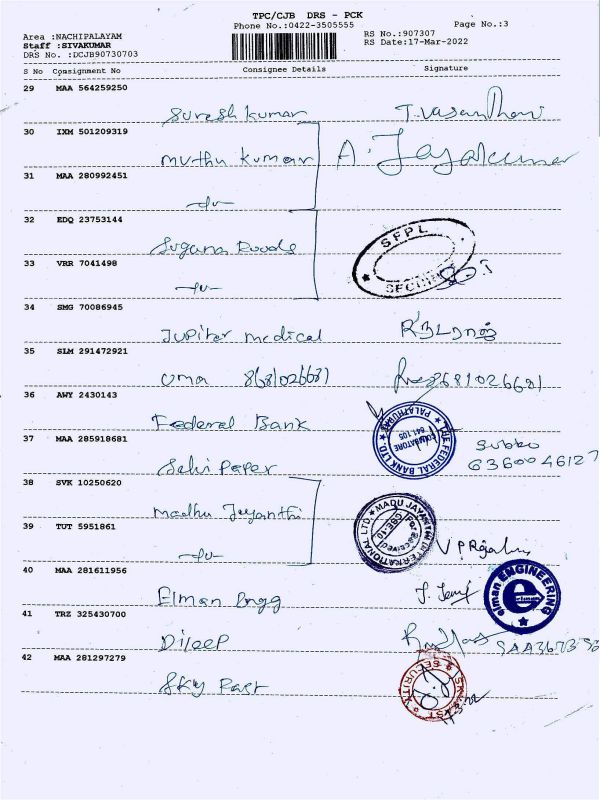 TPC/CJB DRS - PCK
Phone No.:0422-3505555
Page No.:3
Area :NACHIPALAYAM
Staff :SIVAKUMAR
DRS No. :DCJB90730703
RS No.:907307
RS Date:17-Mar-2022
S No Consignment No Consignee Details Signature
29 MAA 564259250
Suresh Kumar
30 IXM 501209319
Muthu Kumar A. Jayakumar
31 MAA 280992451
32 EDQ 23753144
Suguna Foods
SFPL
33 VRR 7041498
34 SMG 70086945
Jupiter medical
35 SLM 291472921
uma 8681026681 8681026681
36 AWY 2430143
Federal Bank
THE FEDERAL BANK LTD. PALATHURAI
COIMBATORE
641 105
37 MAA 285918681
Selvi Paper
6360046127
38 SVK 10250620
Madhu Jeyanthi
MADU JAYANTHI INTERNATIONAL LTD.
39 TUT 5951861
40 MAA 281611956
Elman Engg
elman ENGINEERING
e
elman
41 TRZ 325430700
Dileep
42 MAA 281297279
Sky Rast
SECURITY